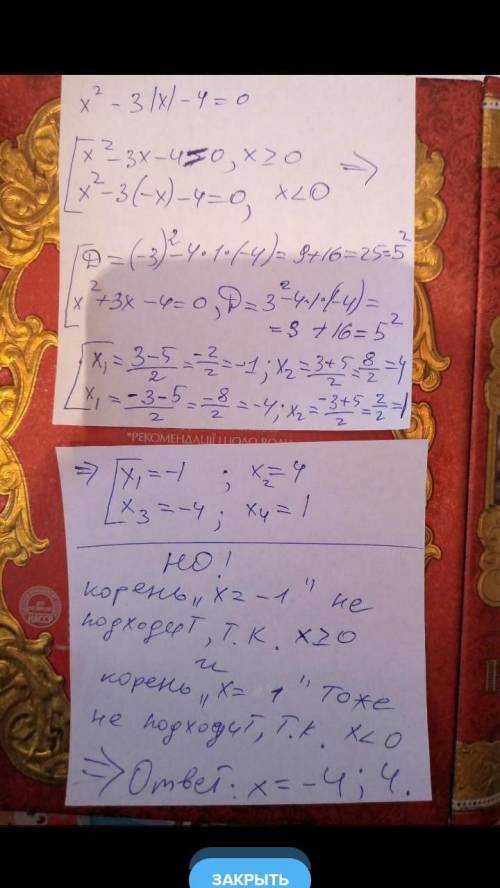 x² - 3|x| - 4 = 0
x² - 3x - 4 = 0, x ≥ 0 ⇒
x² - 3(-x) - 4 = 0, x < 0
D = (-3)² - 4·1·(-4) = 9 + 16 = 25 = 5²
x² + 3x - 4 = 0, D = 3² - 4·1·(-4) =
= 9 + 16 = 5²
x₁ = (3-5)/2 = -2/2 = -1; x₂ = (3+5)/2 = 8/2 = 4
x₁ = (-3-5)/2 = -8/2 = -4; x₂ = (-3+5)/2 = 2/2 = 1
*РЕКОМЕНДАЦІЇ ЩОДО
⇒ x₁ = -1 ; x₂ = 4
x₃ = -4 ; x₄ = 1
НО!
корень „x = -1" не
подходит, т.к. x ≥ 0
и
корень „x = 1" тоже
не подходит, т.к. x < 0
⇒ Ответ: x = -4; 4.
HACCP
ЗАКРЫТЬ